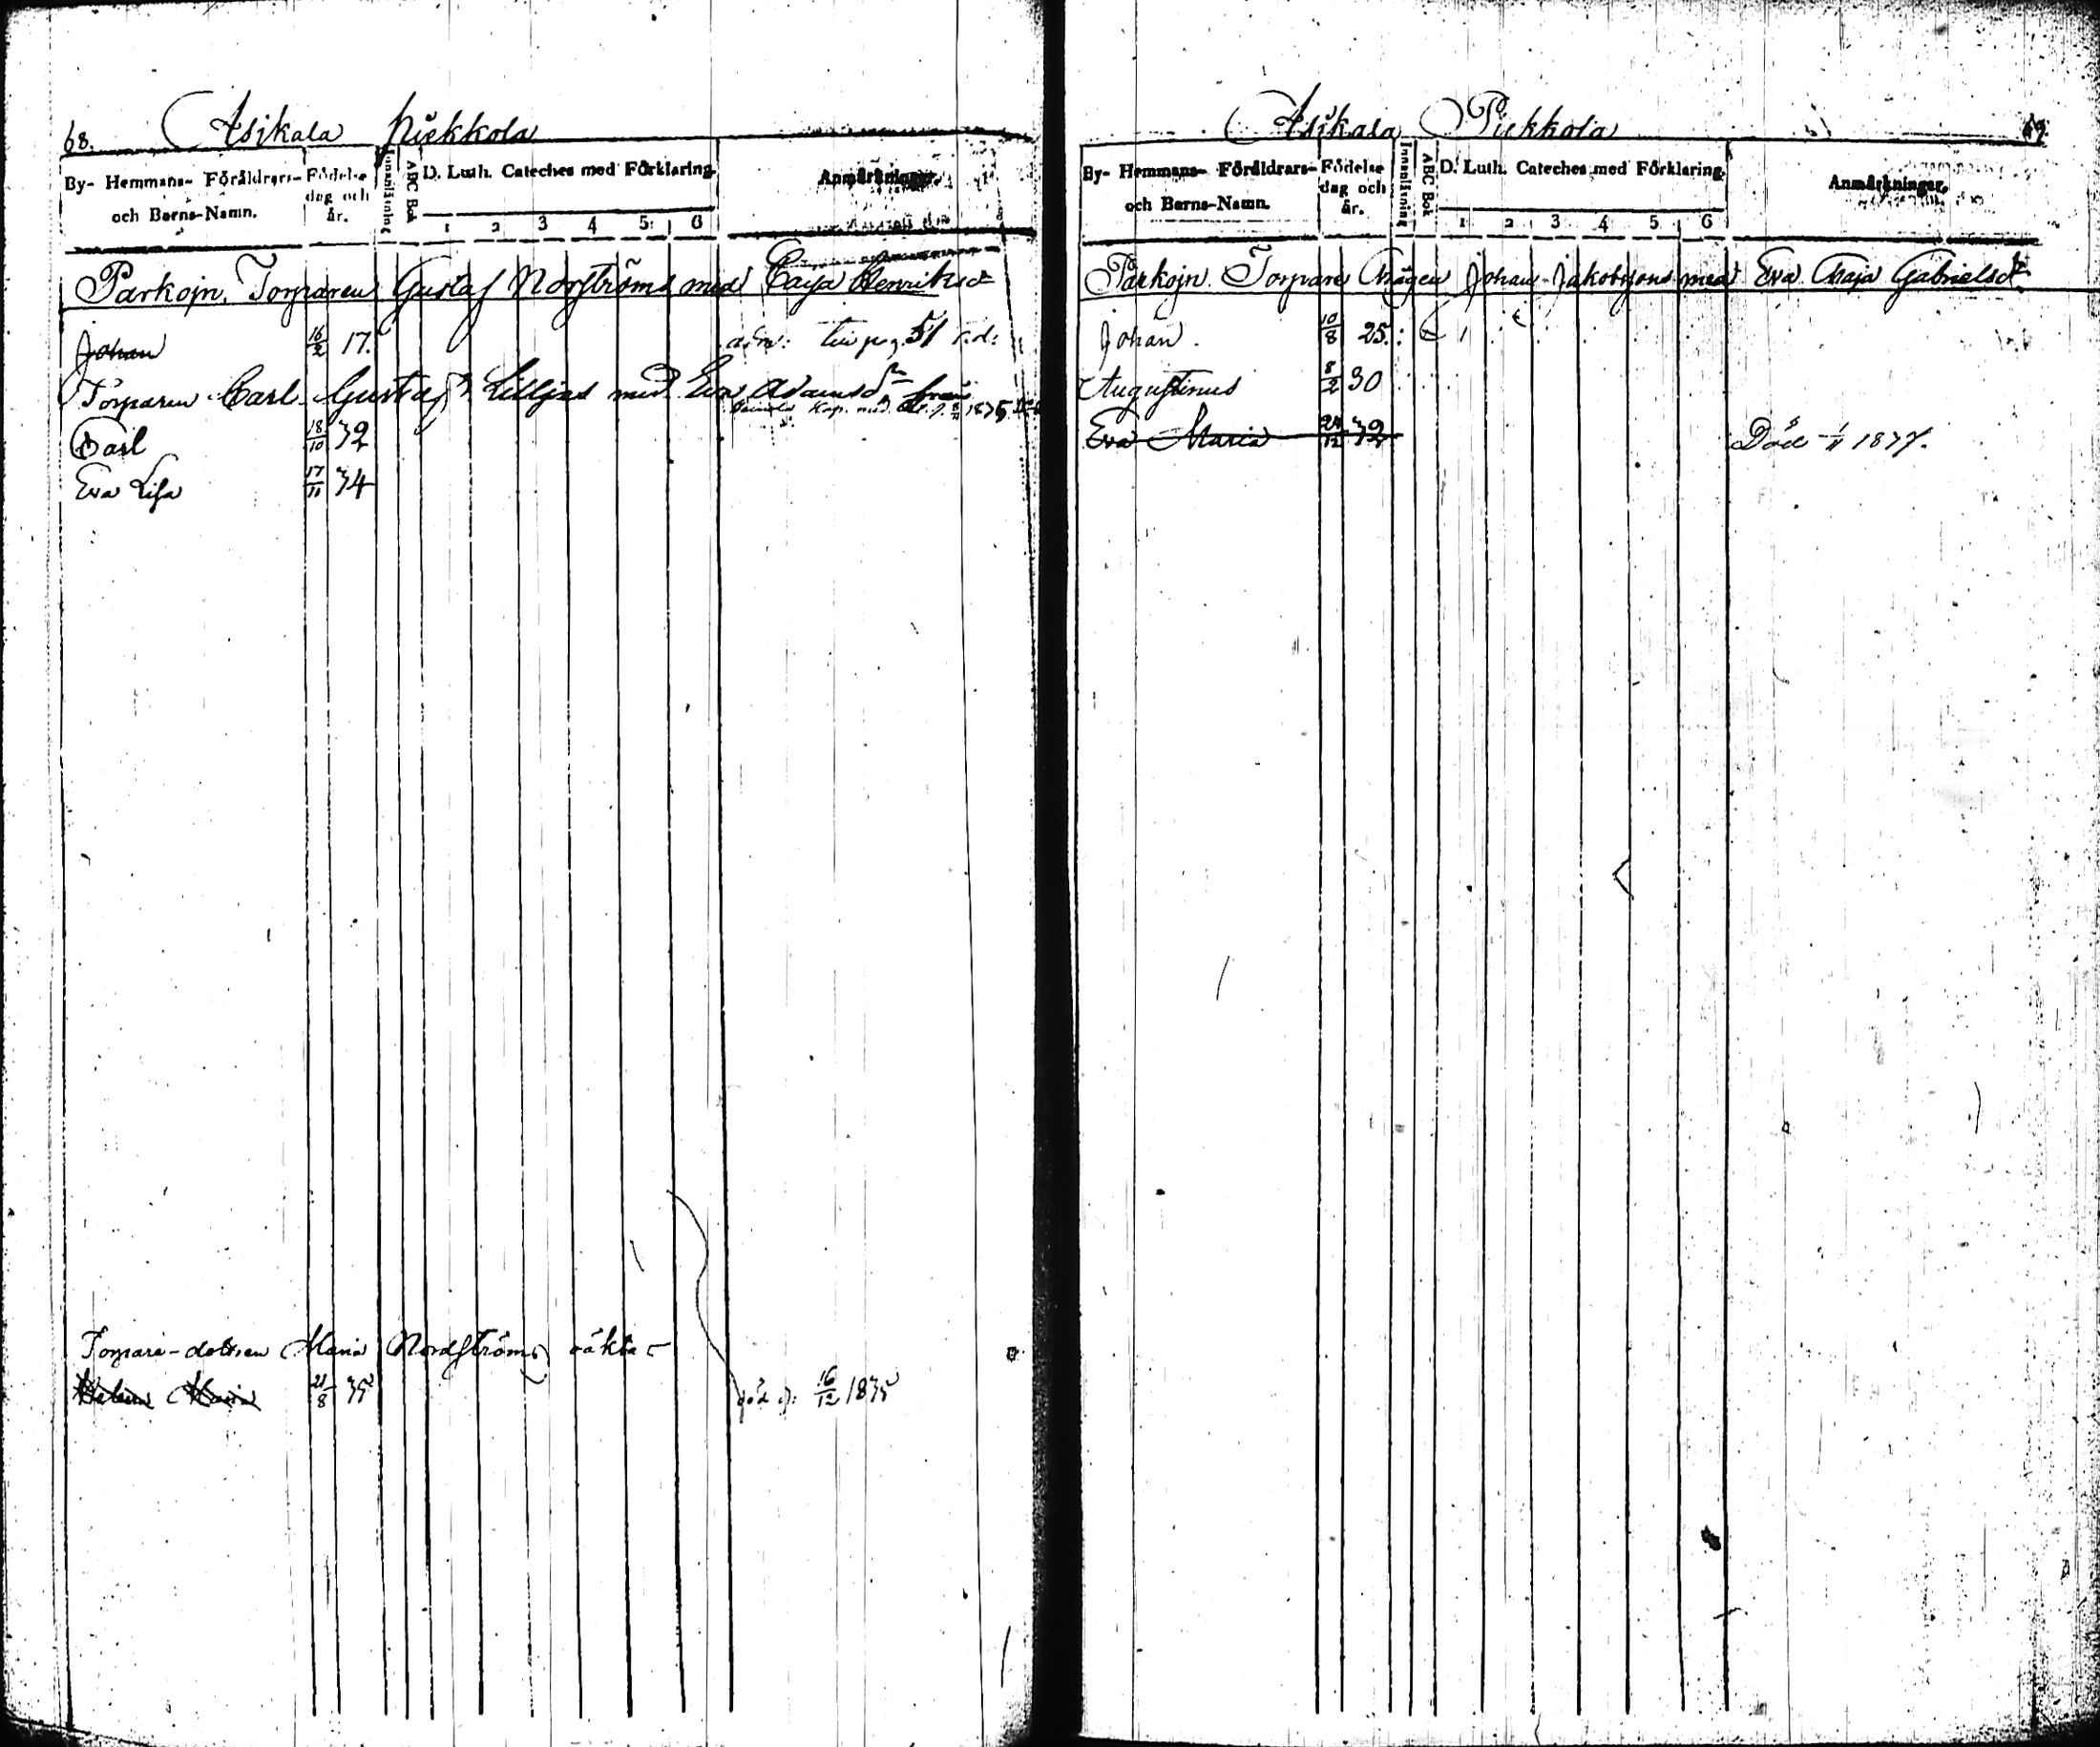 68. Asikala Piekkola
By- Hemmans- Föräldrars- och Barns-Namn. Födelse dag och år. Innanläsning ABC Bok D. Luth. Cateches med Förklaring. 1 2 3 4 5 6 Anmärkningar.
Parkojn. Torparen Gustaf Norströms med Caija Henriksdr
Johan 16/2 17. pag 51
Torparen Carl Gustafs Lilljas med Eva Adamsdr från
Kap. med 1835
Carl 18/10 32
Eva Lisa 17/11 34
Torpare-dottren Maria Nordströms oäkta
Helena Maria 21/8 35 död d: 16/12 1835
Asikala Piekkola 69.
By- Hemmans- Föräldrars- och Barns-Namn. Födelse dag och år. Innanläsning ABC Bok D. Luth. Cateches med Förklaring. 1 2 3 4 5 6 Anmärkningar.
Parkojn. Torpare Mågen Johan Jakobssons med Eva Maja Gabrielsdr.
Johan. 10/8 25.
Augustinus 8/2 30
Eva Maria 24/12 32 Död 1/11 1837.